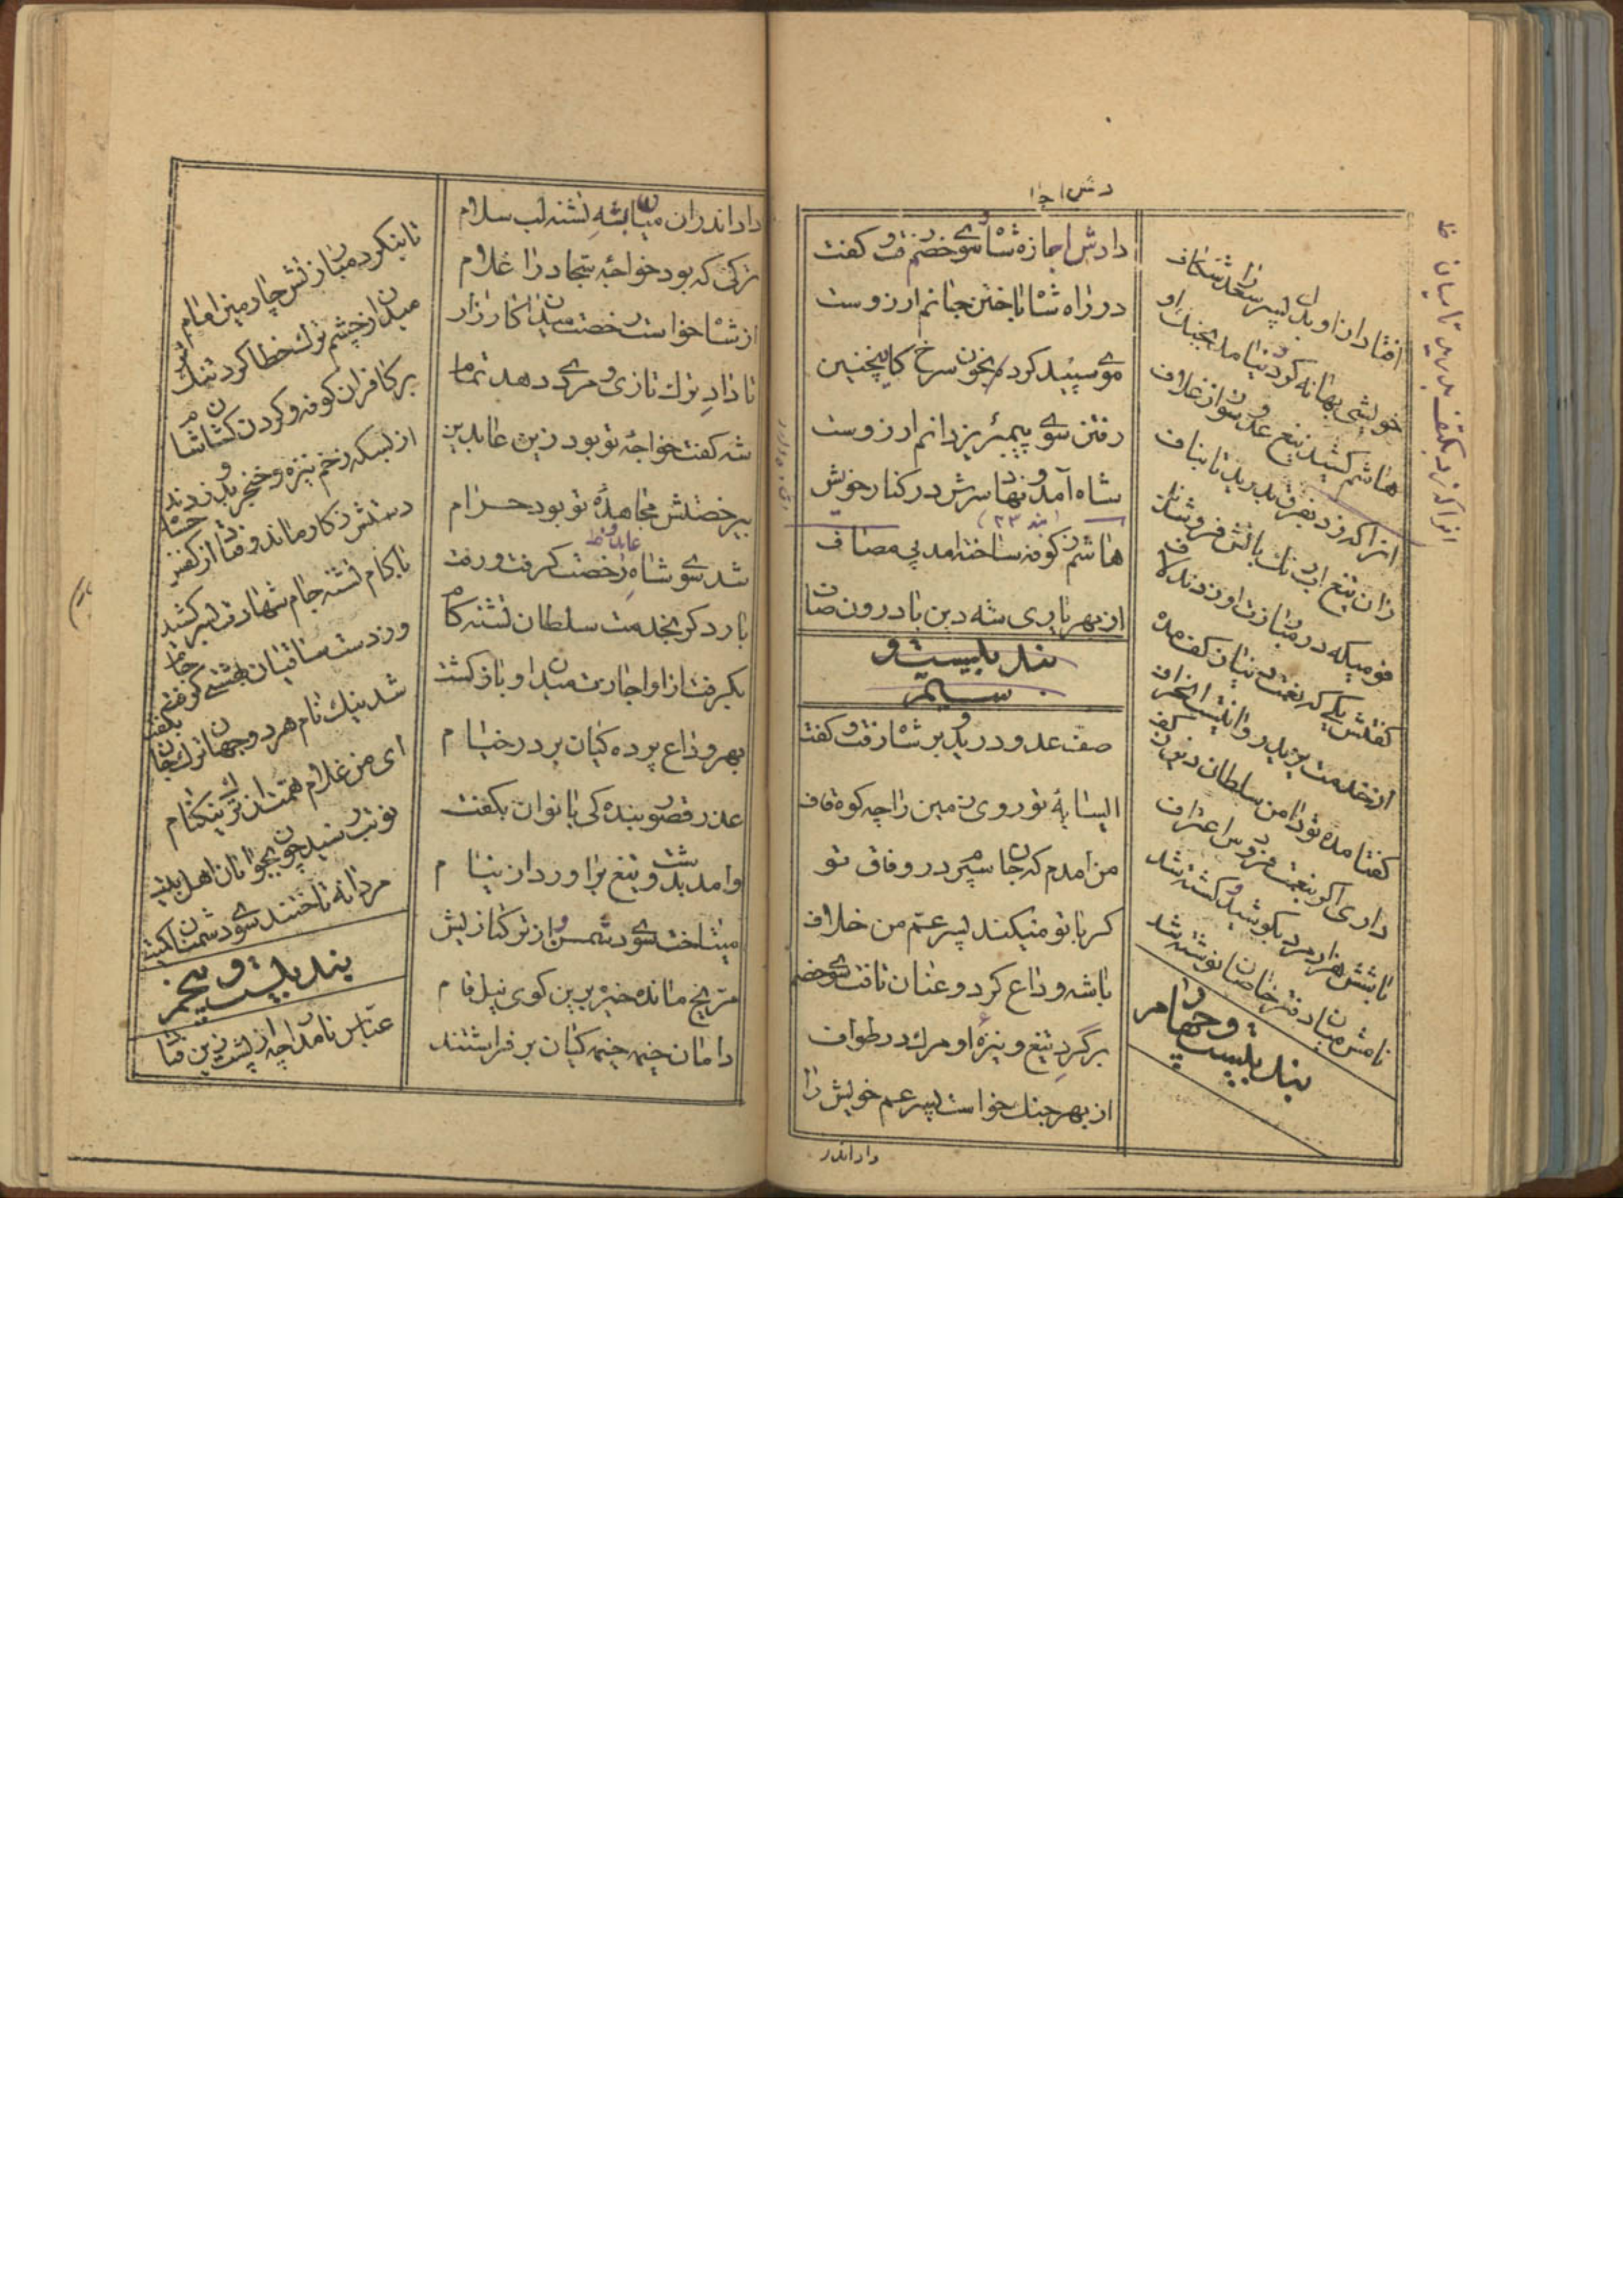 دش اجا
دادش اجازه شاه سوی خصم رفت و کفت
در راه شاه باختن جانم ارزوست
موی سپید کرده بخون سرخ کاینچنین
رفتن سوی پیمبر یزدانم ارزوست
شاه آمد و نهاد سرش در کنار خویش
(بند ۲۳)
هاشم ز کوفه ساخته امد پی مصاف
از بهر یاری شه دین با درون صاف
بند بیست و
سیم
صف عدو درید بر شاه رفت و کفت
ای سایهٔ تو روی زمین را چه کوه قاف
من امدم که جان سپرم در وفاق تو
کر با تو میکند پسر عم من خلاف
با شه وداع کرد و عنان تافت سوی خصم
برگرد تیغ و نیزهٔ او مرك در طواف
از بهر جنك خواست پسر عم خویش را
داداندر
افتاد از او بدل پسر سعد را شکاف
خویشی بهانه کرد و نیامد بجنك او
هاشم کشید تیغ عدو سوز از غلاف
انرا که زد بفرق بدرید تا بناف
زان تیغ
قومیکه در مبارزت او زدند لاف
کفتش یکی که نعمت
از خدمت یزید روا نیست انحراف
کفتا مده تو دامن سلطان دین ز کف
داری اکر بنعمت فردوس اعتراف
با شش هزار مرد بکوشید و کشته شد
نامش میان دفتر خاصان نوشته شد
بند بیست و چهارم
انرا که زد بکتف بدرید تا میان خ
داد اندران میان بشه تشنه لب سلام
ترکی که بود خواجه سجاد را غلام
از شاه خواست رخصت میدان کارزار
تا داد ترك تازی و مردی دهد تمام
شه کفت خواجهٔ تو بود زین عابدین
بیرخصتش مجاهدهٔ تو بود حرام
عابد و خ
شد سوی شاهزاده رخصت کرفت و رفت
بار دکر بخدمت سلطان تشنه کام
بکرفت از او اجازت میدان و باز کشت
بهر وداع پرده کیان بر در خیام
عذر قصور بنده کی بانوان بکفت
وامد بدشت و تیغ براورد از نیام
میتاخت سوی دشمن و از ترکتازیش
مریخ مانده خیره برین کوی نیل فام
دامان خیمه خیمه کیان بر فراشتند
تا بنکرد مبارزتش چارمین امام
میدان ز چشم ترك خطا کرد تنك
بر کافران کوفه و کردن کشان شام
از بسکه زخم نیزه و خنجر بدو زدند
دستش ز کار ماند و فتاد از کفش حسام
ناکام تشنه جام شهادت بسر کشید
وز دست ساقیان بهشتی کرفت جام
شد نیك نام هر دو جهان ترك جان بکفت
ای من غلام همت ان ترك نیکنام
نوبت رسید چون بجوانان اهل بیت
مردانه تاختند سوی دشمنان کمیت
بند بیست و پنجم
عباس نامدار چه از پشت زین فتاد